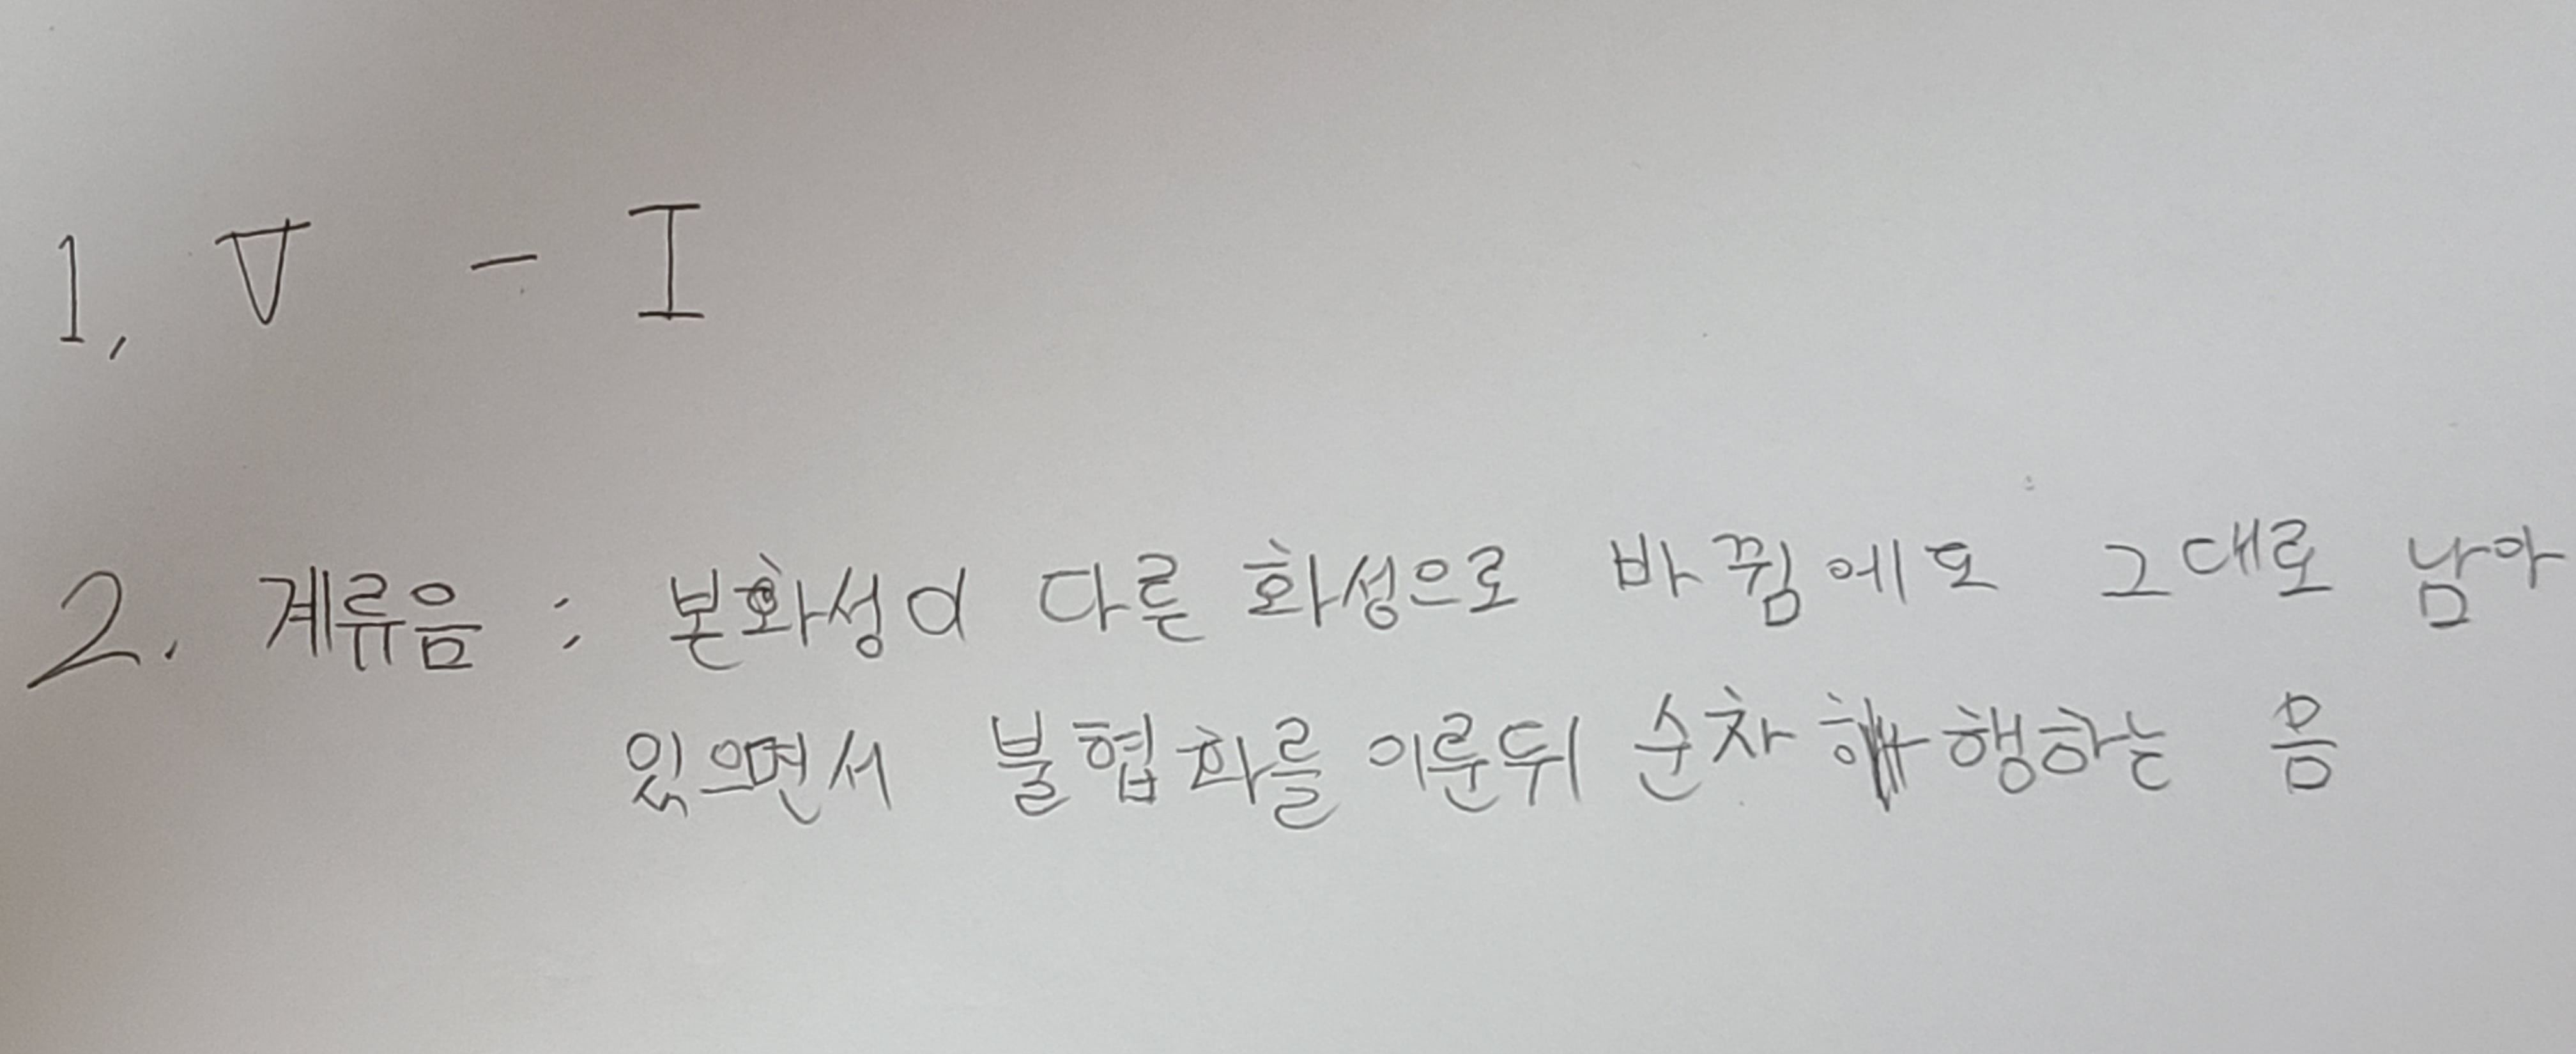 1, V - I
2. 계류음 : 본화성이 다른 화성으로 바뀜에도 그대로 남아
있으면서 불협화를 이룬뒤 순차 행하는 음